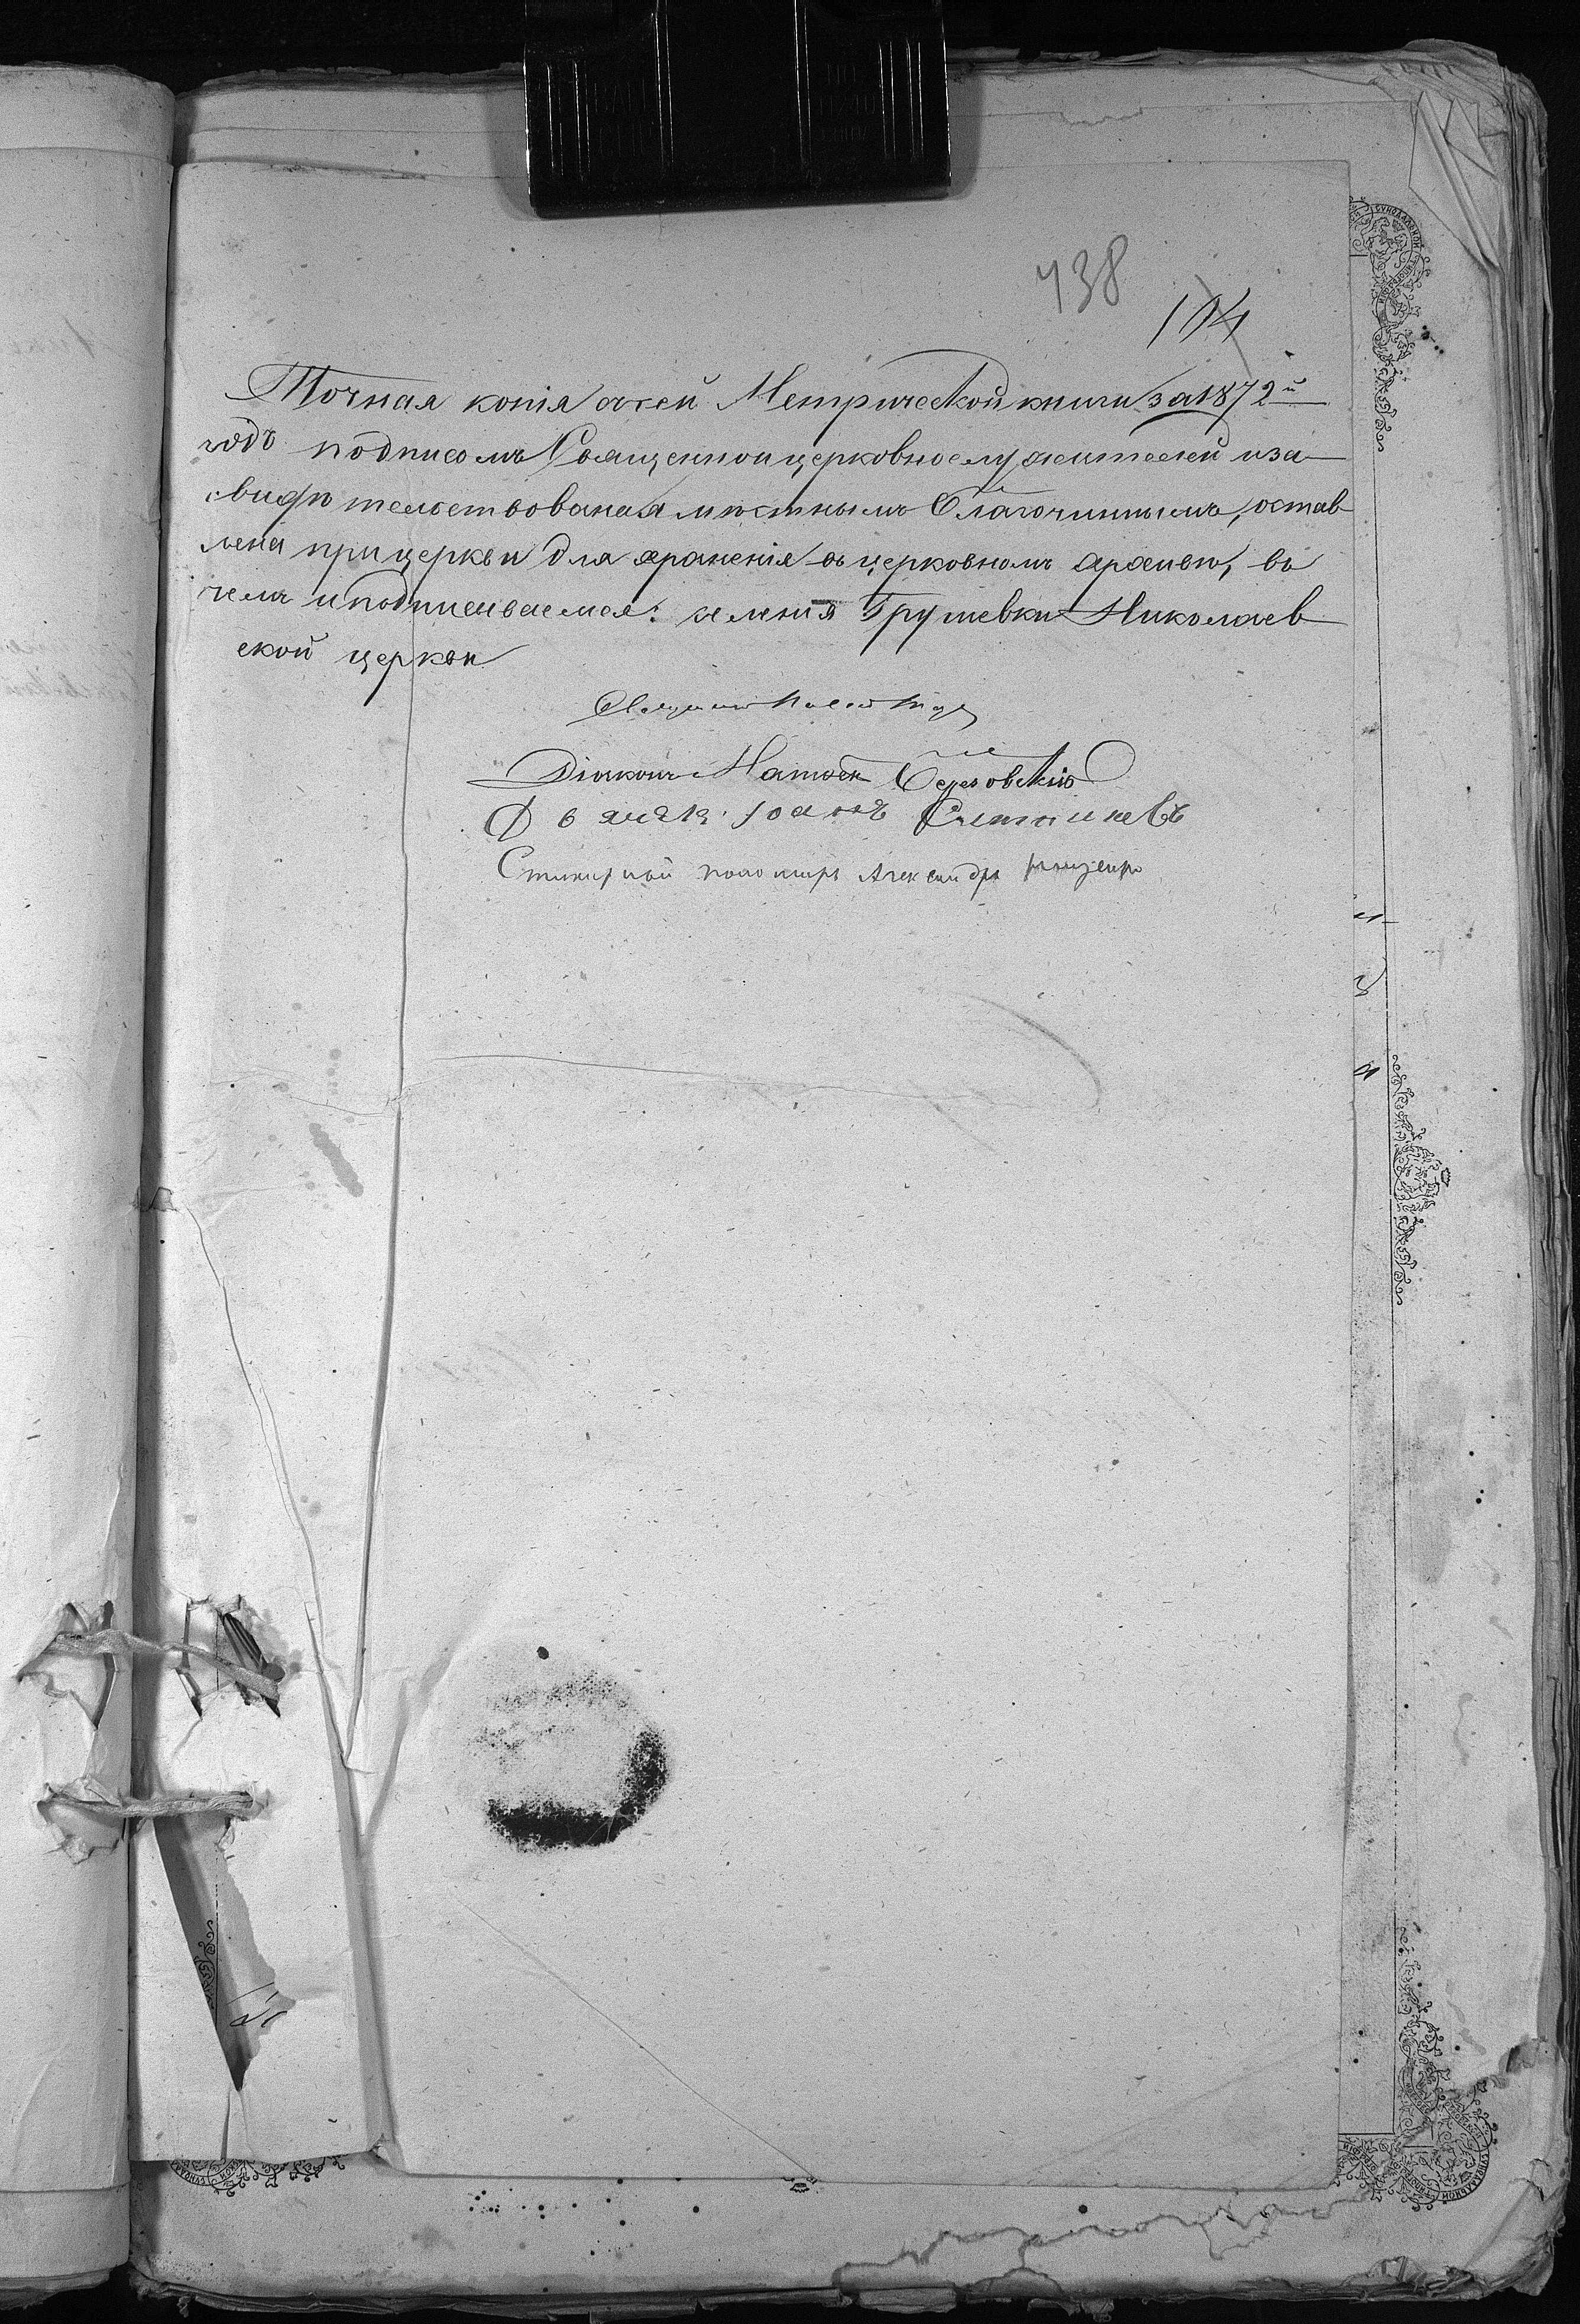 438
104
Точная копія отсей Метрической книги за 1872й
годъ подписомъ Священноицерковнослужителей иза
свидѣтельствованая мѣстнымъ Благочиннымъ, остав
лена прицеркви для храненія въ церковномъ архивѣ, въ
чемъ иподписываемся: селенія Грушевки Николаев
ской церкви
Діаконъ Матвѣй Березовскій
Іоаннъ
пономарь Александръ